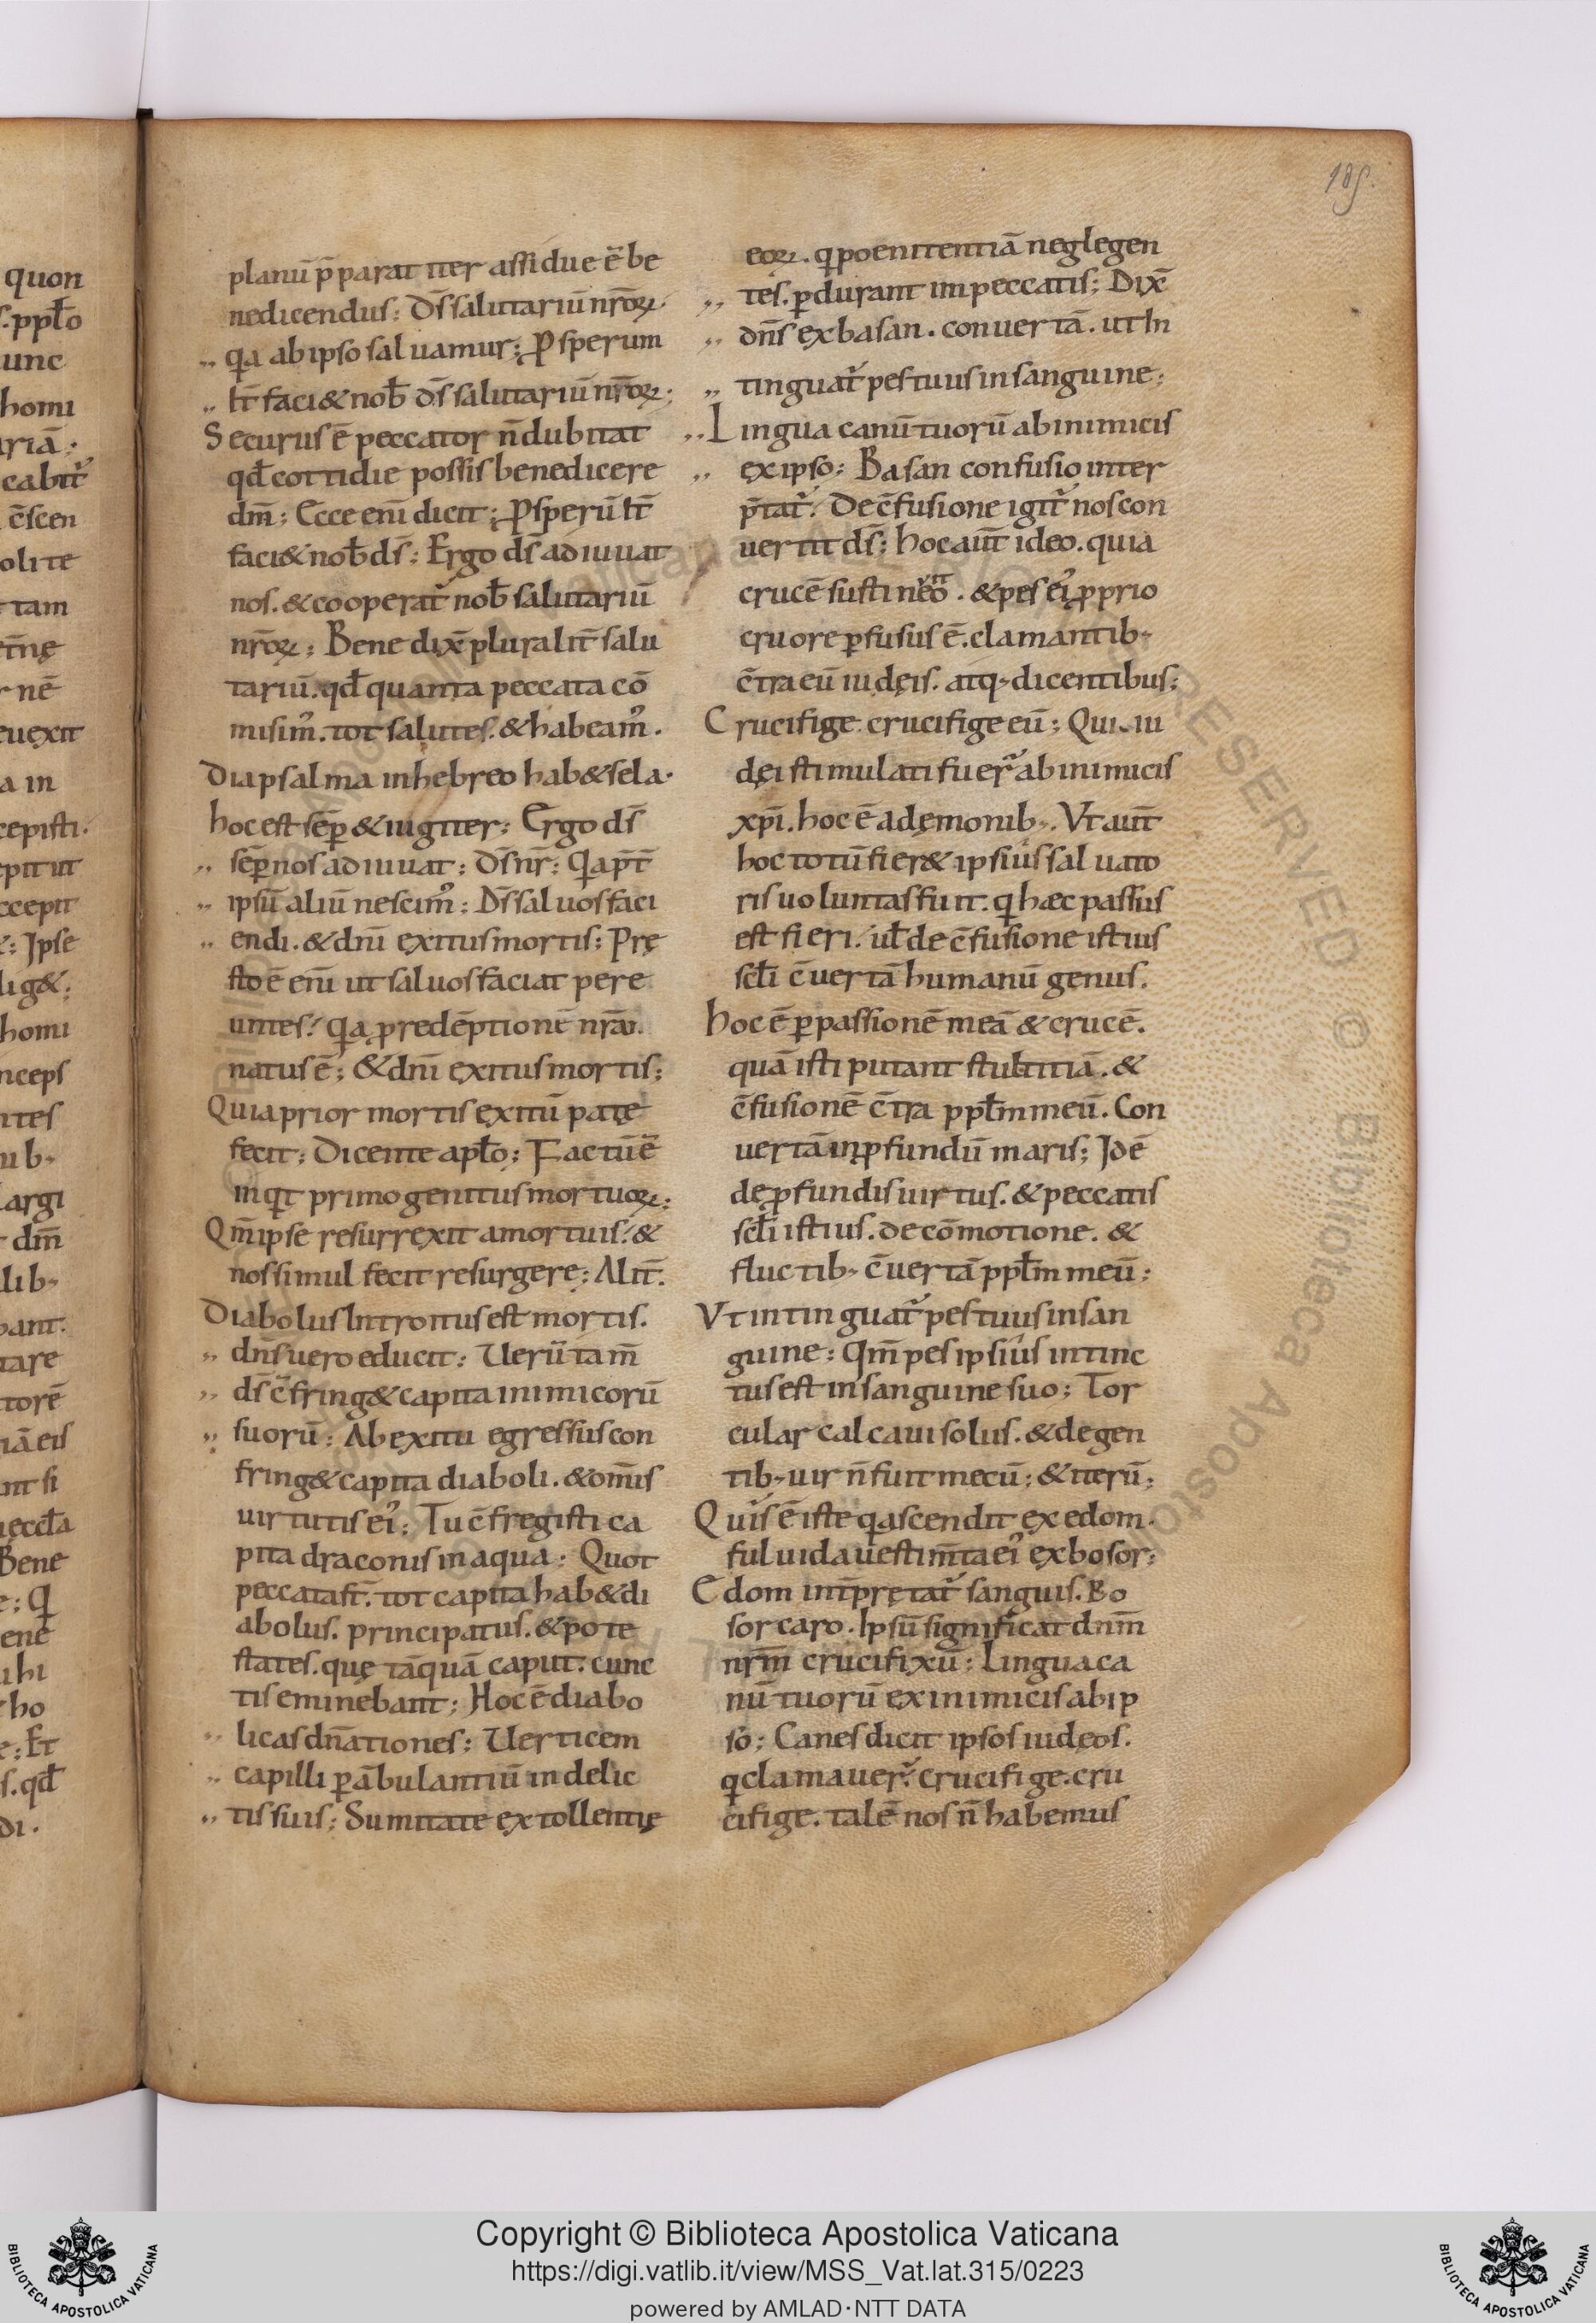 185.
quon
s. ppło
unc
homi
ariā ;
cabit᷑
c̄scen
olite
tam
et̄nę
r nē
euexit
a in
cepisti.
epit ut
ccepit
: Ipse
lig&;
homi
nceps
ntes
ib-
largi
dm̄
lib-
bant.
tare
torē
iāeis
nt si
ęccła
Bene
e; Q
ene
ihi
ho
e; Et
s. qđ
di.
planū p̄parat iter assidue ē be
nedicendus; Ds̄ salutariū nr̄oꝝ.
qa ab ipso saluamur; Ꝓsperum
it̄ faci& nob̄ ds̄ salutariū nr̄oꝝ;
Securus ē peccator n̄ dubitat
qđ cottidie possis benedicere
dm̄; Ecce enī dicit; Ꝓsperū it̄
faci& nob̄ ds̄; Ergo ds̄ adiuuat
nos. & cooperat᷑ nob̄ salutariū
nr̄oꝝ; Bene dix̄ pluralit̄ salu
tariū. qđ quanta peccata cō
misim᾽. tot salutes. & habeam᾽.
Diapsalma in hebreo hab& sela.
hoc est sēp & iugiter; Ergo ds̄
sēp nos adiuuat; Ds̄ nr̄; Qa p̄t̄
ipsū aliū nescim᾽; Ds̄ saluos faci
endi. & dnī exitus mortis; Prę
sto ē enī ut saluos faciat pere
untes; qa ꝓ redēptionē nrāı.
natus ē; & dnī exitus mortis;
Quia prior mortis exitū patę
fecit; Dicente apło; Factū ē
inqt primogenitus mortuoꝝ;
Qm̄ ipse resurrexit a mortuis; &
nos simul fecit resurgerę; Alit̄.
Diabolus Introitus est mortis.
dn̄s uero educit; Uerū tam̄
ds̄ c̄fring& capita inimicorū
suorū; Ab exitu egressus con
fring& capita diaboli. & om̄is
uirtutis ei᾽; Tu c̄fregisti ca
pita draconis in aqua; Quot
peccata st̄. tot capita hab& di
abolus. principatus. & pote
states. quę tāquā caput. cunc
tis eminebant; Hoc ē diabo
licas dn̄ationes; Uerticem
capilli ꝑābulantiū in delic
tis suis; Sumitate extollentię
eoꝝ. q poenitentiā neglegen
tes. ꝑdurant im peccatis; Dix̄
dn̄s ex basan. conuertā. ut In
tinguat᷑ pes tuus in sanguine;
Lingua canū tuorū ab inimicis
ex ipso; Basan confusio inter
p̄tat᷑. De c̄fusione igit᷑ nos con
uertit ds̄; hoc aut̄ ideo. quia
crucē sustineō. & pes ei᾽ ꝓprio
cruore ꝑfusus ē. clamantib-
c̄tra eū iudęis. atq- dicentibus;
Crucifige. crucifige eū; Qui iu
dęi stimulati fuer᷑ ab inimicis
xp̄i. hoc ē a dęmonib-. Vt aut̄
hoc totū fier& ipsius saluato
ris uoluntas fuit. q hæc passus
est fieri. ut̄ de c̄fusione istius
scłi c̄uertā humanū genus.
hoc ē ꝑ passionē meā & crucē.
quā isti putant stultitiā. &
c̄fusionē c̄tra pplm̄ meū. Con
uertā in ꝓfundū maris; Idē
de ꝓfundis uirtus. & peccatis
scłi istius. de cōmotione. &
fluctib- c̄uertā pplm̄ meū;
Vt intinguat᷑ pes tuus in san
guine; Qm̄ pes ipsius intinc
tus est in sanguine suo; Tor
cular calcaui solus. & de gen
tib- uir n̄ fuit mecū; & iterū;
Quis ē iste q ascendit ex edom.
fuluida uestim̄ta ei᾽ ex bosor;
Edom int̄prętat᷑ sanguis. Bo
sor caro. Ipsū significat dnm̄
nrm̄ crucifixū; Lingua ca
nū tuorū ex inimicis ab ip
so; Canes dicit ipsos iudęos.
q clamauer᷑. crucifige. cru
cifige. talē nos n̄ habemus
Copyright © Biblioteca Apostolica Vaticana
https://digi.vatlib.it/view/MSS_Vat.lat.315/0223
powered by AMLAD·NTT DATA
BIBLIOTECA APOSTOLICA VATICANA
BIBLIOTECA APOSTOLICA VATICANA